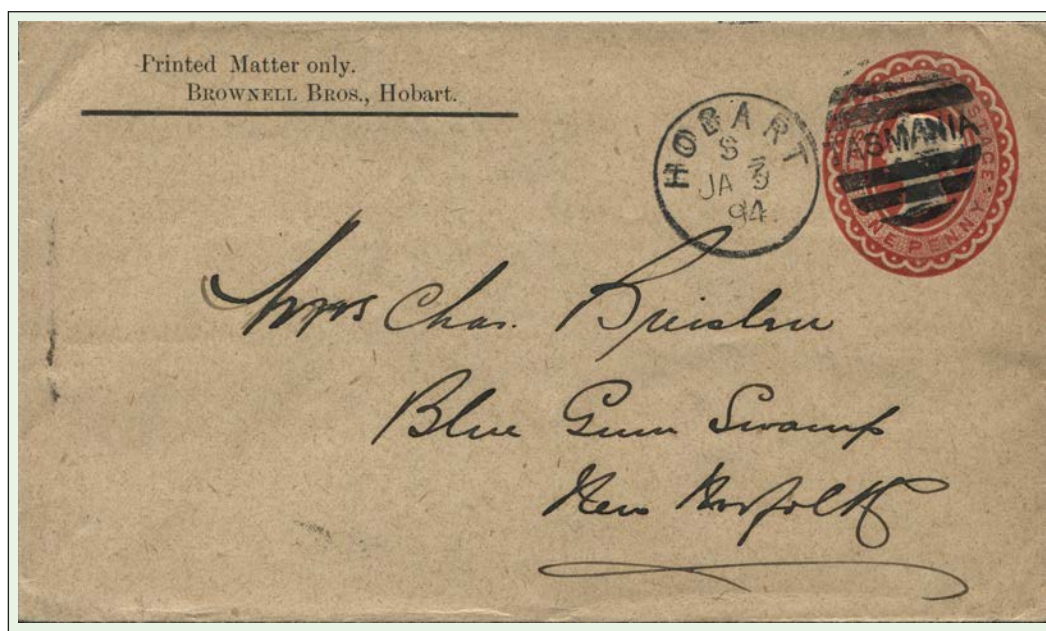 Printed Matter only.
BROWNELL BROS., Hobart.
HOBART
S
JA
94
TASMANIA
ONE PENNY
Mrs Chas.
Blue Gum Swamp
New Norfolk